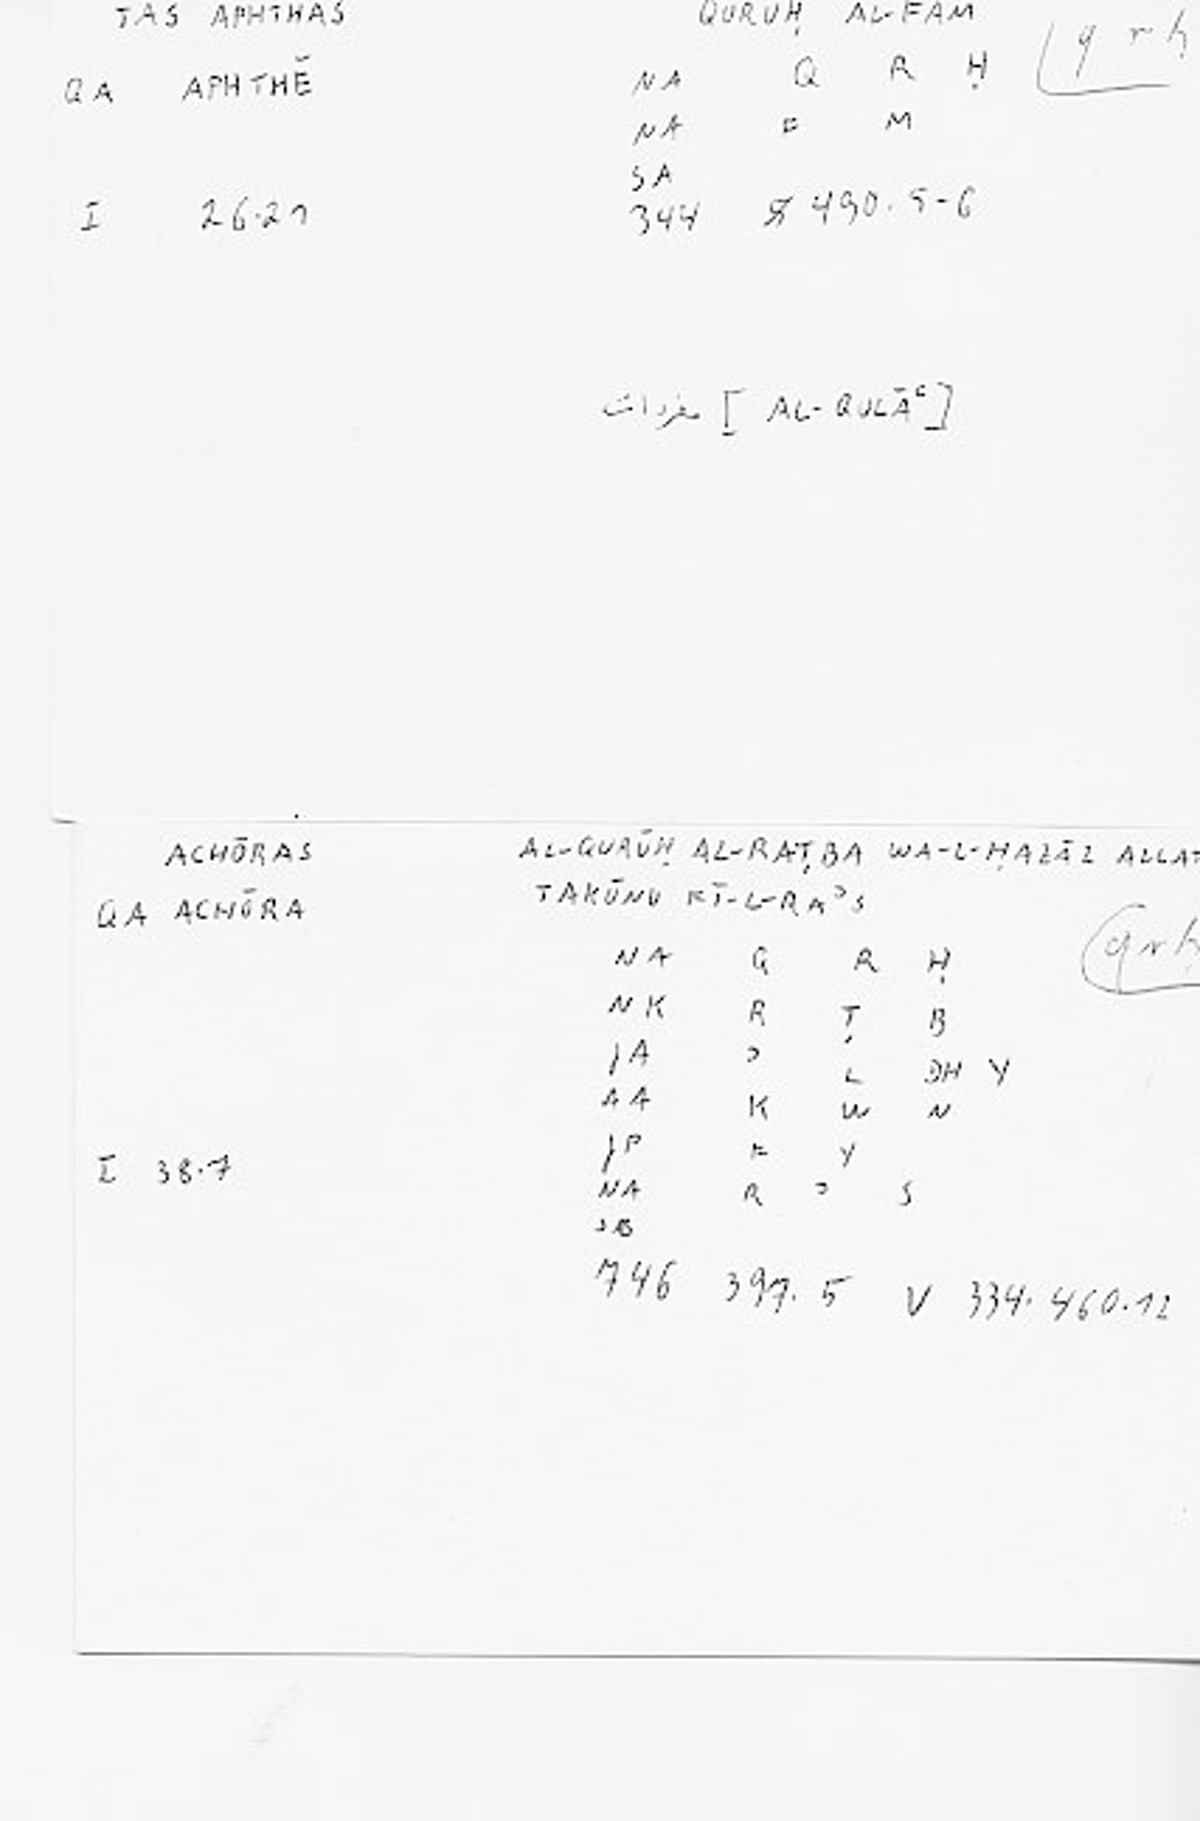 TAS APHTHAS QURUḤ AL-FAM
q r ḥ
QA APHTHĒ NA Q R Ḥ
NA F M
SA
I 26.21 344 490.5-6
مفردات [AL-QULĀʿ]
ACHŌRAS AL-QURŪḤ AL-RAṬBA WA-L-ḤAZĀZ ALLAT
TAKŪNU FĪ-L-RAʾS
QA ACHŌRA
qrḥ
NA Q R Ḥ
NK R Ṭ B
JA ʾ L DH Y
AA K W N
I 38.7 JP F Y
NA R ʾ S
746 397.5 V 334.460.12